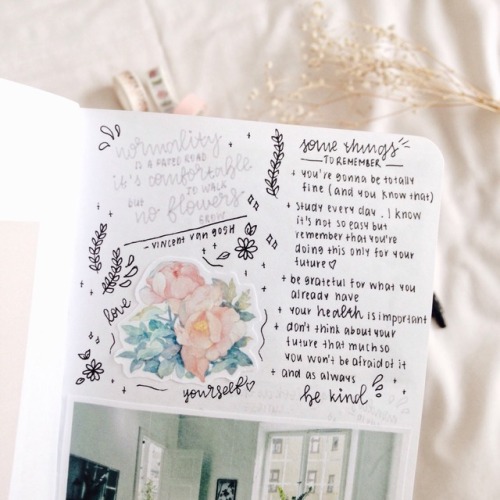 normality
is a paved road
it's comfortable
to walk
but
no flowers
grow
- vincent van gogh
love
yourself
some things
to remember
+ you're gonna be totally
fine (and you know that)
+ study every day. I know
it's not so easy but
remember that you're
doing this only for your
future♡
+ be grateful for what you
already have
+ your health is important
+ don't think about your
future that much so
you won't be afraid of it
+ and as always
be kind